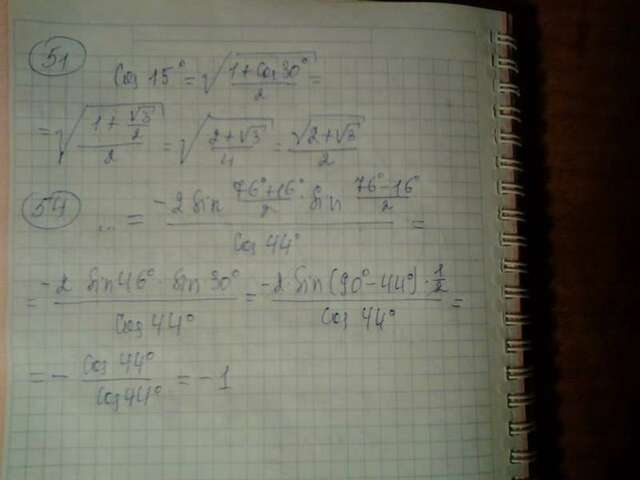 51
cos 15° = √((1 + cos 30°)/2) =
= √((1 + √3/2)/2) = √((2 + √3)/4) = √(2 + √3)/2
54 ... = (-2 sin (76° + 16°)/2 · sin (76° - 16°)/2)/(cos 44°) =
= (-2 sin 46° · sin 30°)/(cos 44°) = (-2 sin (90° - 44°) · 1/2)/(cos 44°) =
= - (cos 44°)/(cos 44°) = -1